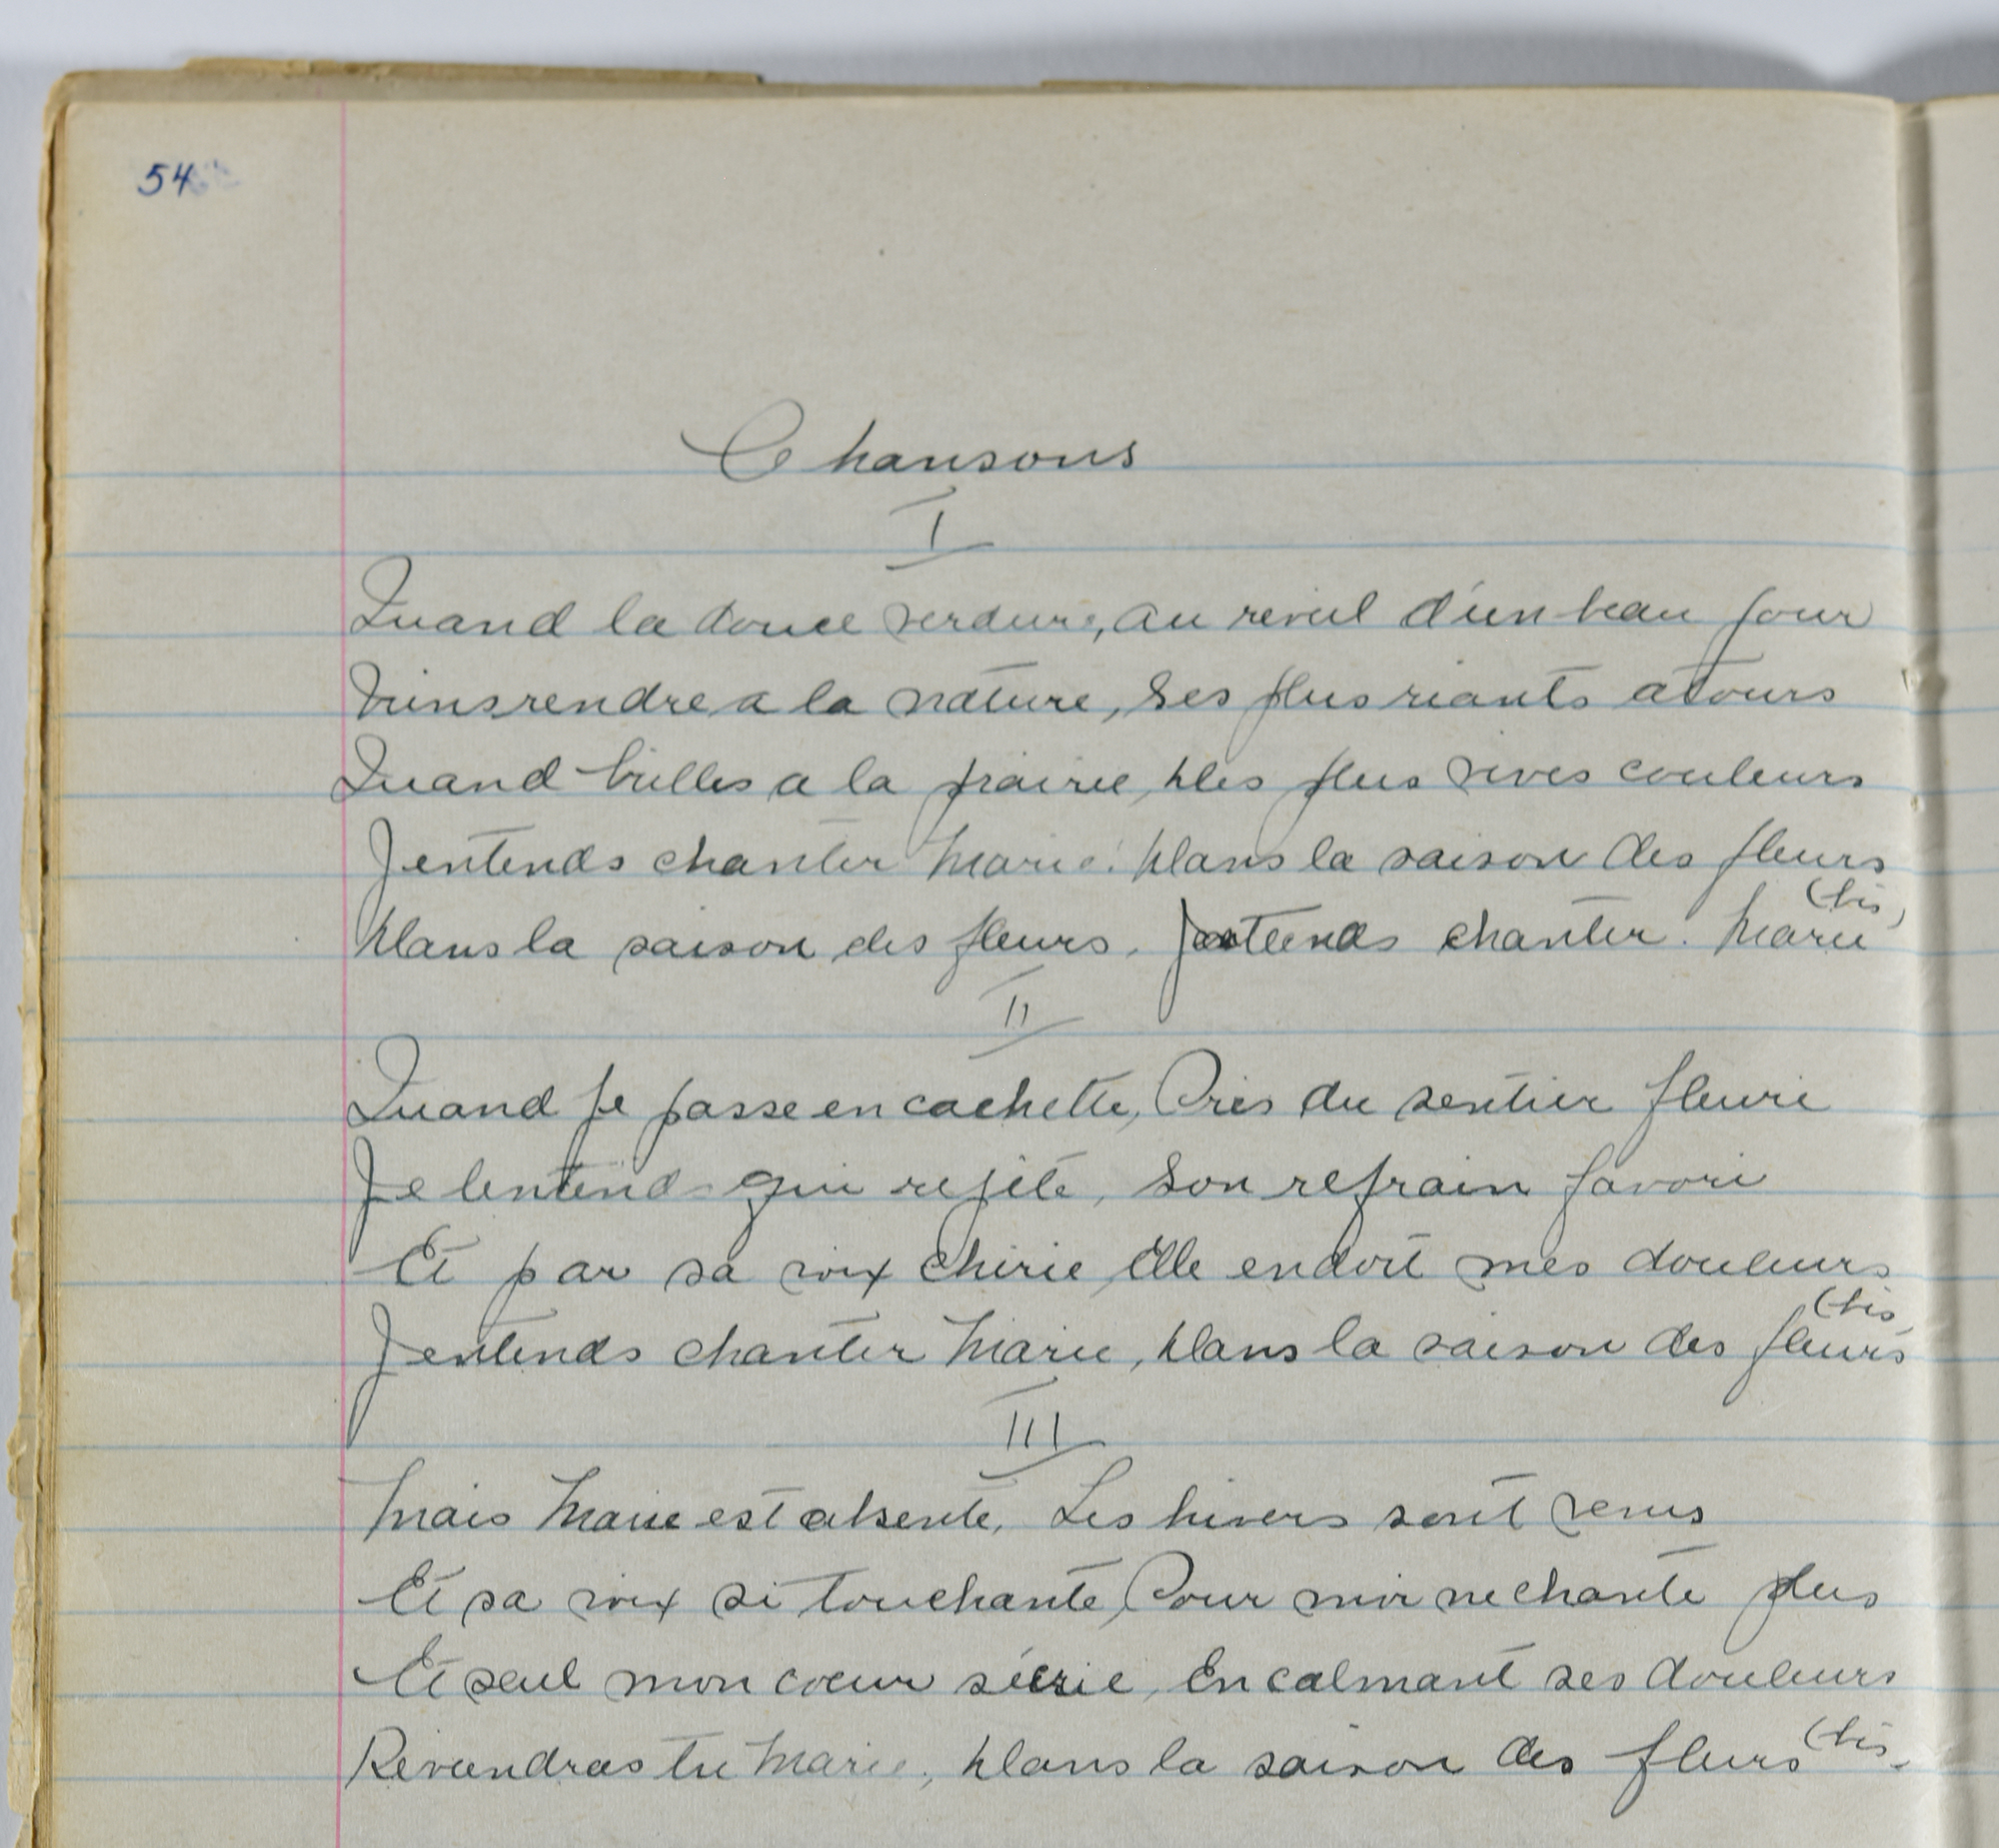 54
Chansons
I
Quand la douce verdure, au reveil d'un beau jour
Viens rendre a la nature, Ses plus riants atours
Quand brilles a la prairie, Des plus vives couleurs
Jentends chanter Marie. Dans la saison des fleurs
(bis)
Dans la saison des fleurs. Jentends chanter. Marie
II
Quand je passe en cachette, Près du sentier fleuri
Je lentend qui rejète, Son refrain favori
Et par sa voix chérie, Elle endort mes douleurs
(bis
Jentends chanter Marie, Dans la saison des fleurs
III
Mais Marie est absente, Les hivers sont venus
Et sa voix si touchante, Pour moi ne chante plus
Et seul mon coeur sécrie, En calmant ses douleurs
Reviendras tu Marie, Dans la saison des fleurs (bis